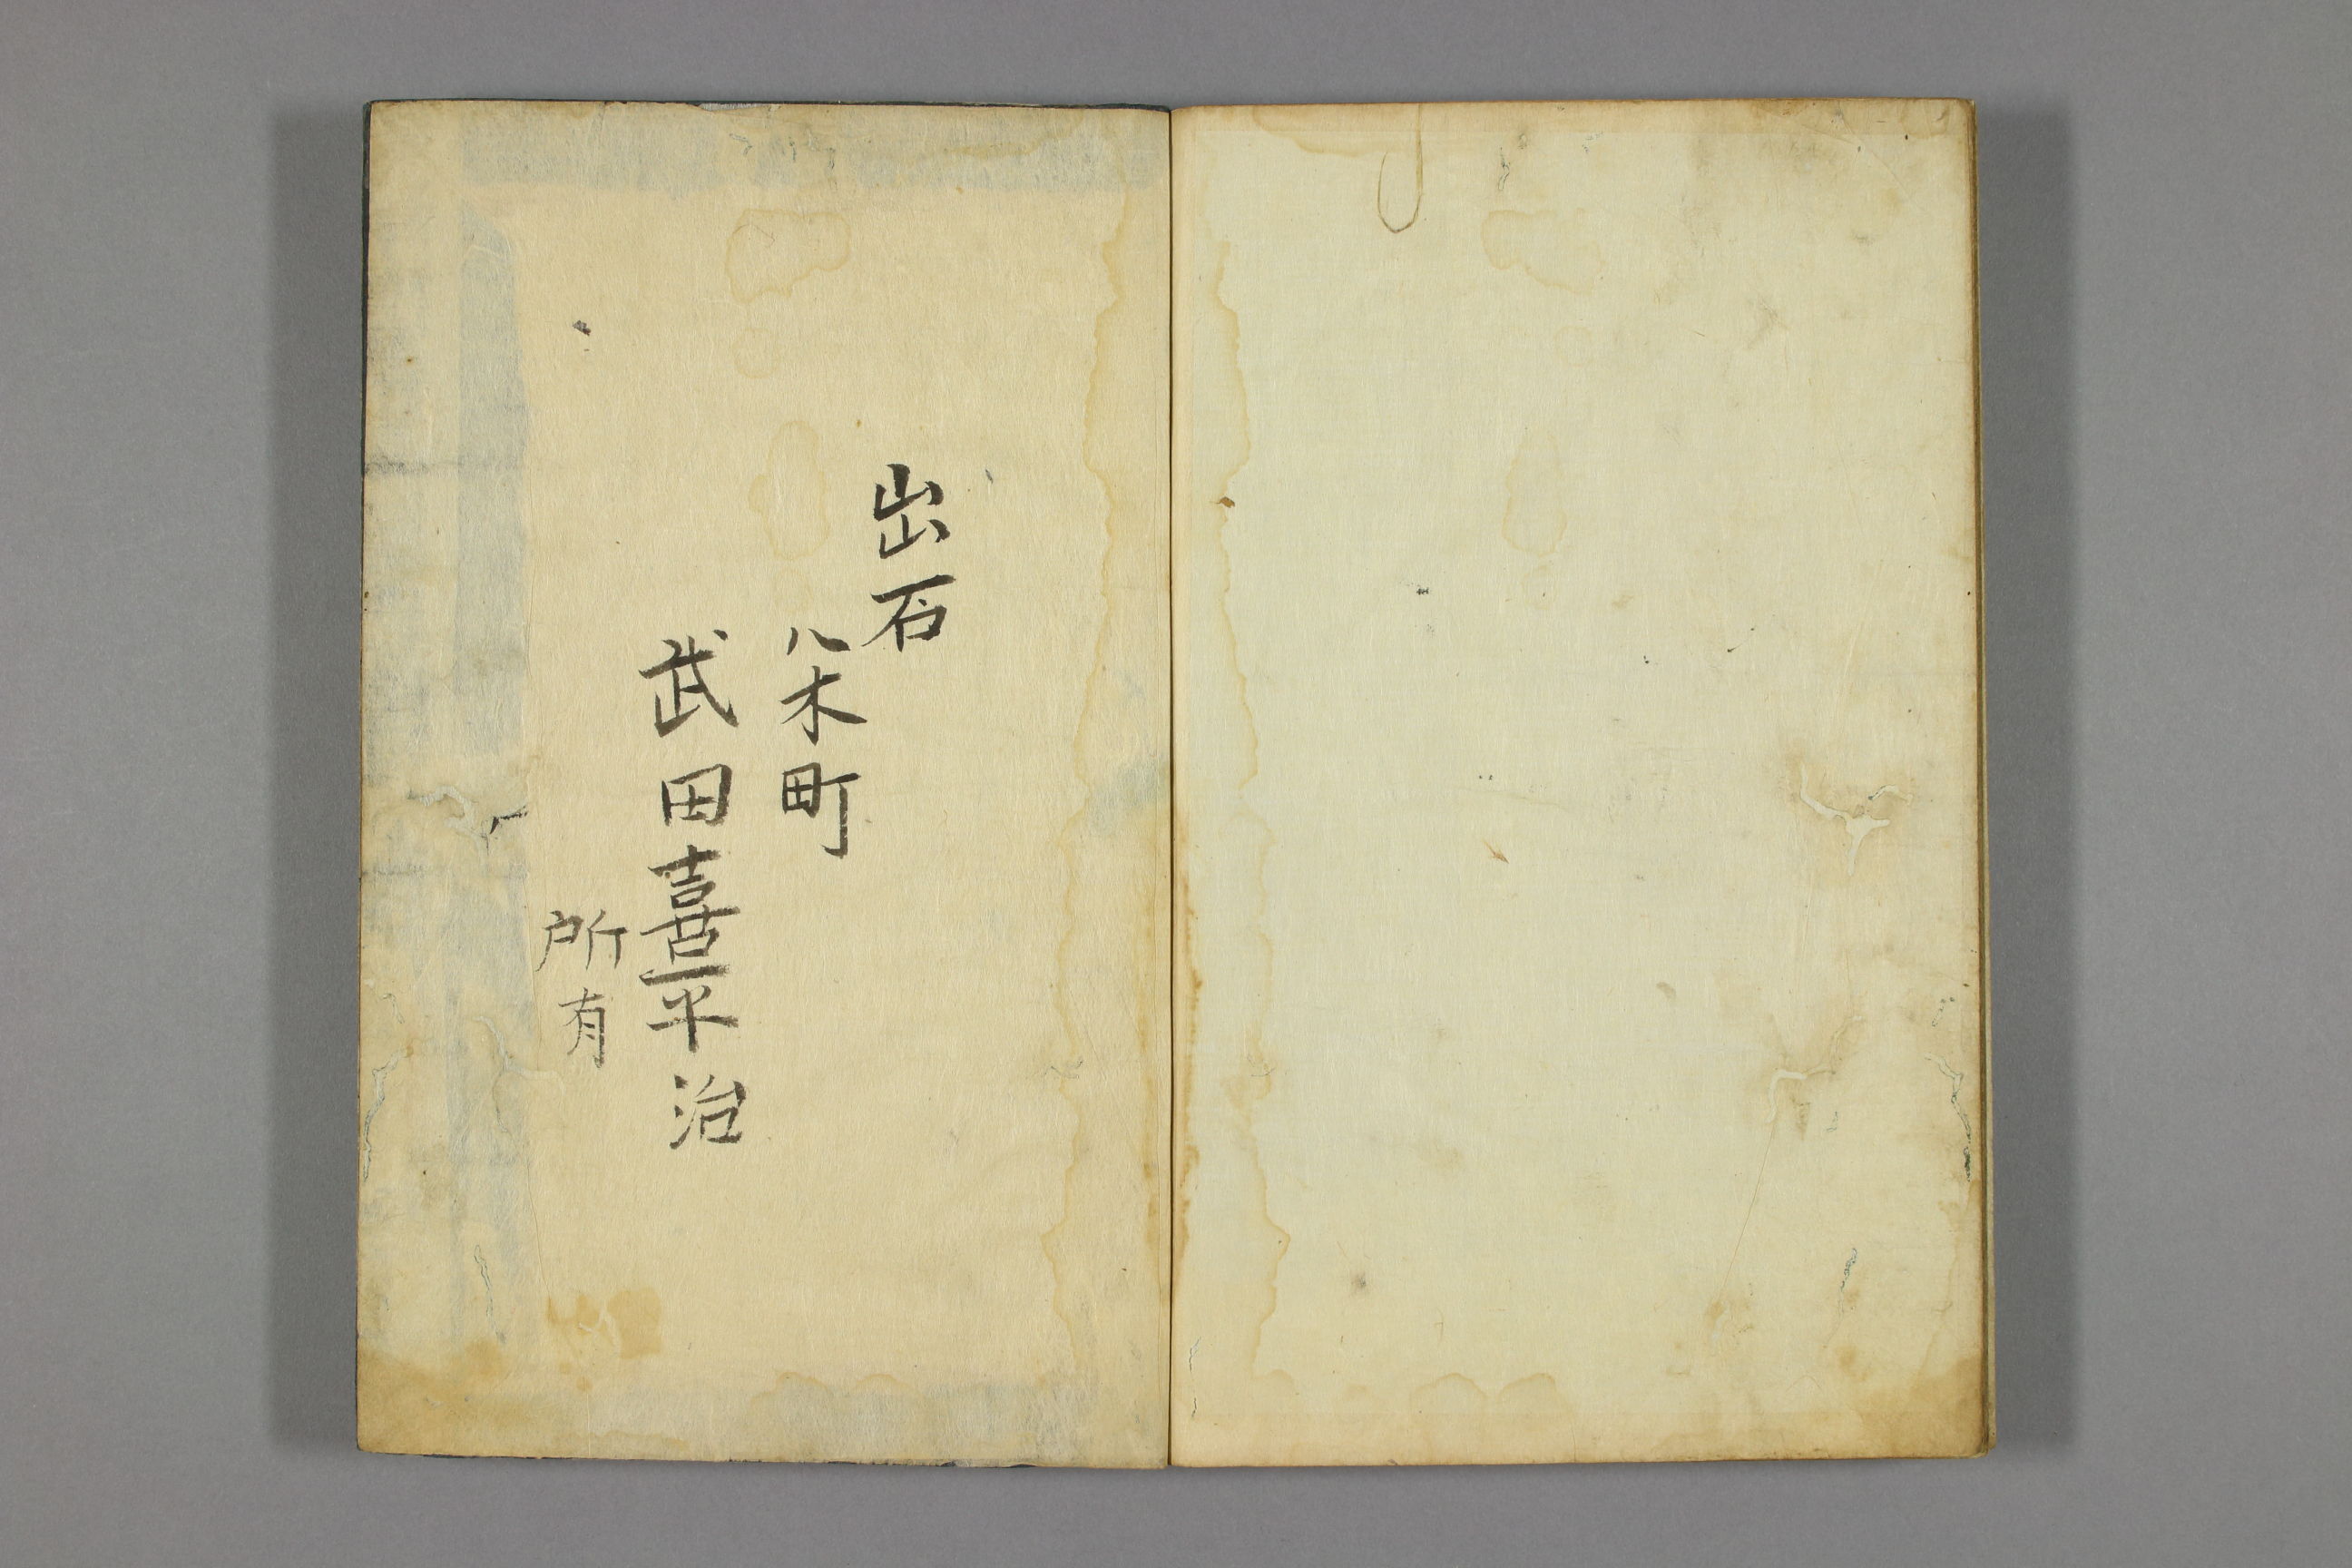 出石
八木町
武田喜平治
所有